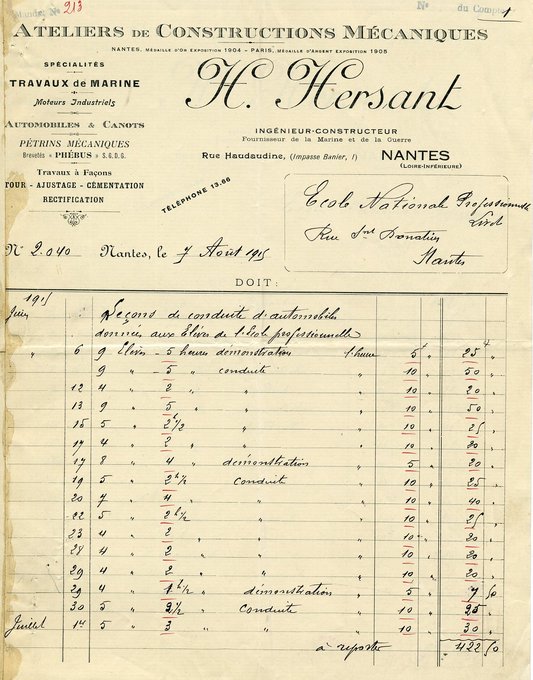 Mandat Nº 213
Nº du Compte 1
ATELIERS DE CONSTRUCTIONS MÉCANIQUES
NANTES, MÉDAILLE D'OR EXPOSITION 1904 - PARIS, MÉDAILLE D'ARGENT EXPOSITION 1905
SPÉCIALITÉS
TRAVAUX de MARINE
Moteurs Industriels
AUTOMOBILES & CANOTS
PÉTRINS MÉCANIQUES
Brevetés « PHÉBUS » S.G.D.G.
Travaux à Façons
TOUR - AJUSTAGE - CÉMENTATION
RECTIFICATION
H. Hersant
INGÉNIEUR-CONSTRUCTEUR
Fournisseur de la Marine et de la Guerre
Rue Haudaudine, (Impasse Banier, 1) NANTES
(LOIRE-INFÉRIEURE)
TÉLÉPHONE 13.66
Ecole Nationale Professionnelle
Livet
Rue St Donatien
Nantes
Nº 2.040 Nantes, le 7 Août 1915
DOIT :
1915
Juin Leçons de conduite d'automobiles
données aux Elèves de l'Ecole professionnelle
" 6 9 Elèves - 5 heures démonstration l'heure 5 " 25 "
9 " - 5 " conduite 10 " 50 "
12 4 " 2 " " 10 " 20 "
13 9 " 5 " " 10 " 50 "
15 5 " 2 h 1/2 " 10 " 25 "
17 4 " 2 " " 10 " 20 "
17 8 " 4 " démonstration 5 " 20 "
19 5 " 2 h 1/2 conduite 10 " 25 "
20 7 " 4 " " 10 " 40 "
22 5 " 2 h 1/2 " 10 " 25 "
23 4 " 2 " " 10 " 20 "
28 4 " 2 " " 10 " 20 "
29 4 " 2 " " 10 " 20 "
29 4 " 1 h 1/2 " démonstration 5 " 7 50
30 5 " 2 1/2 conduite 10 " 25 "
Juillet 1er 5 " 3 " " 10 " 30 "
à reporter 422 50